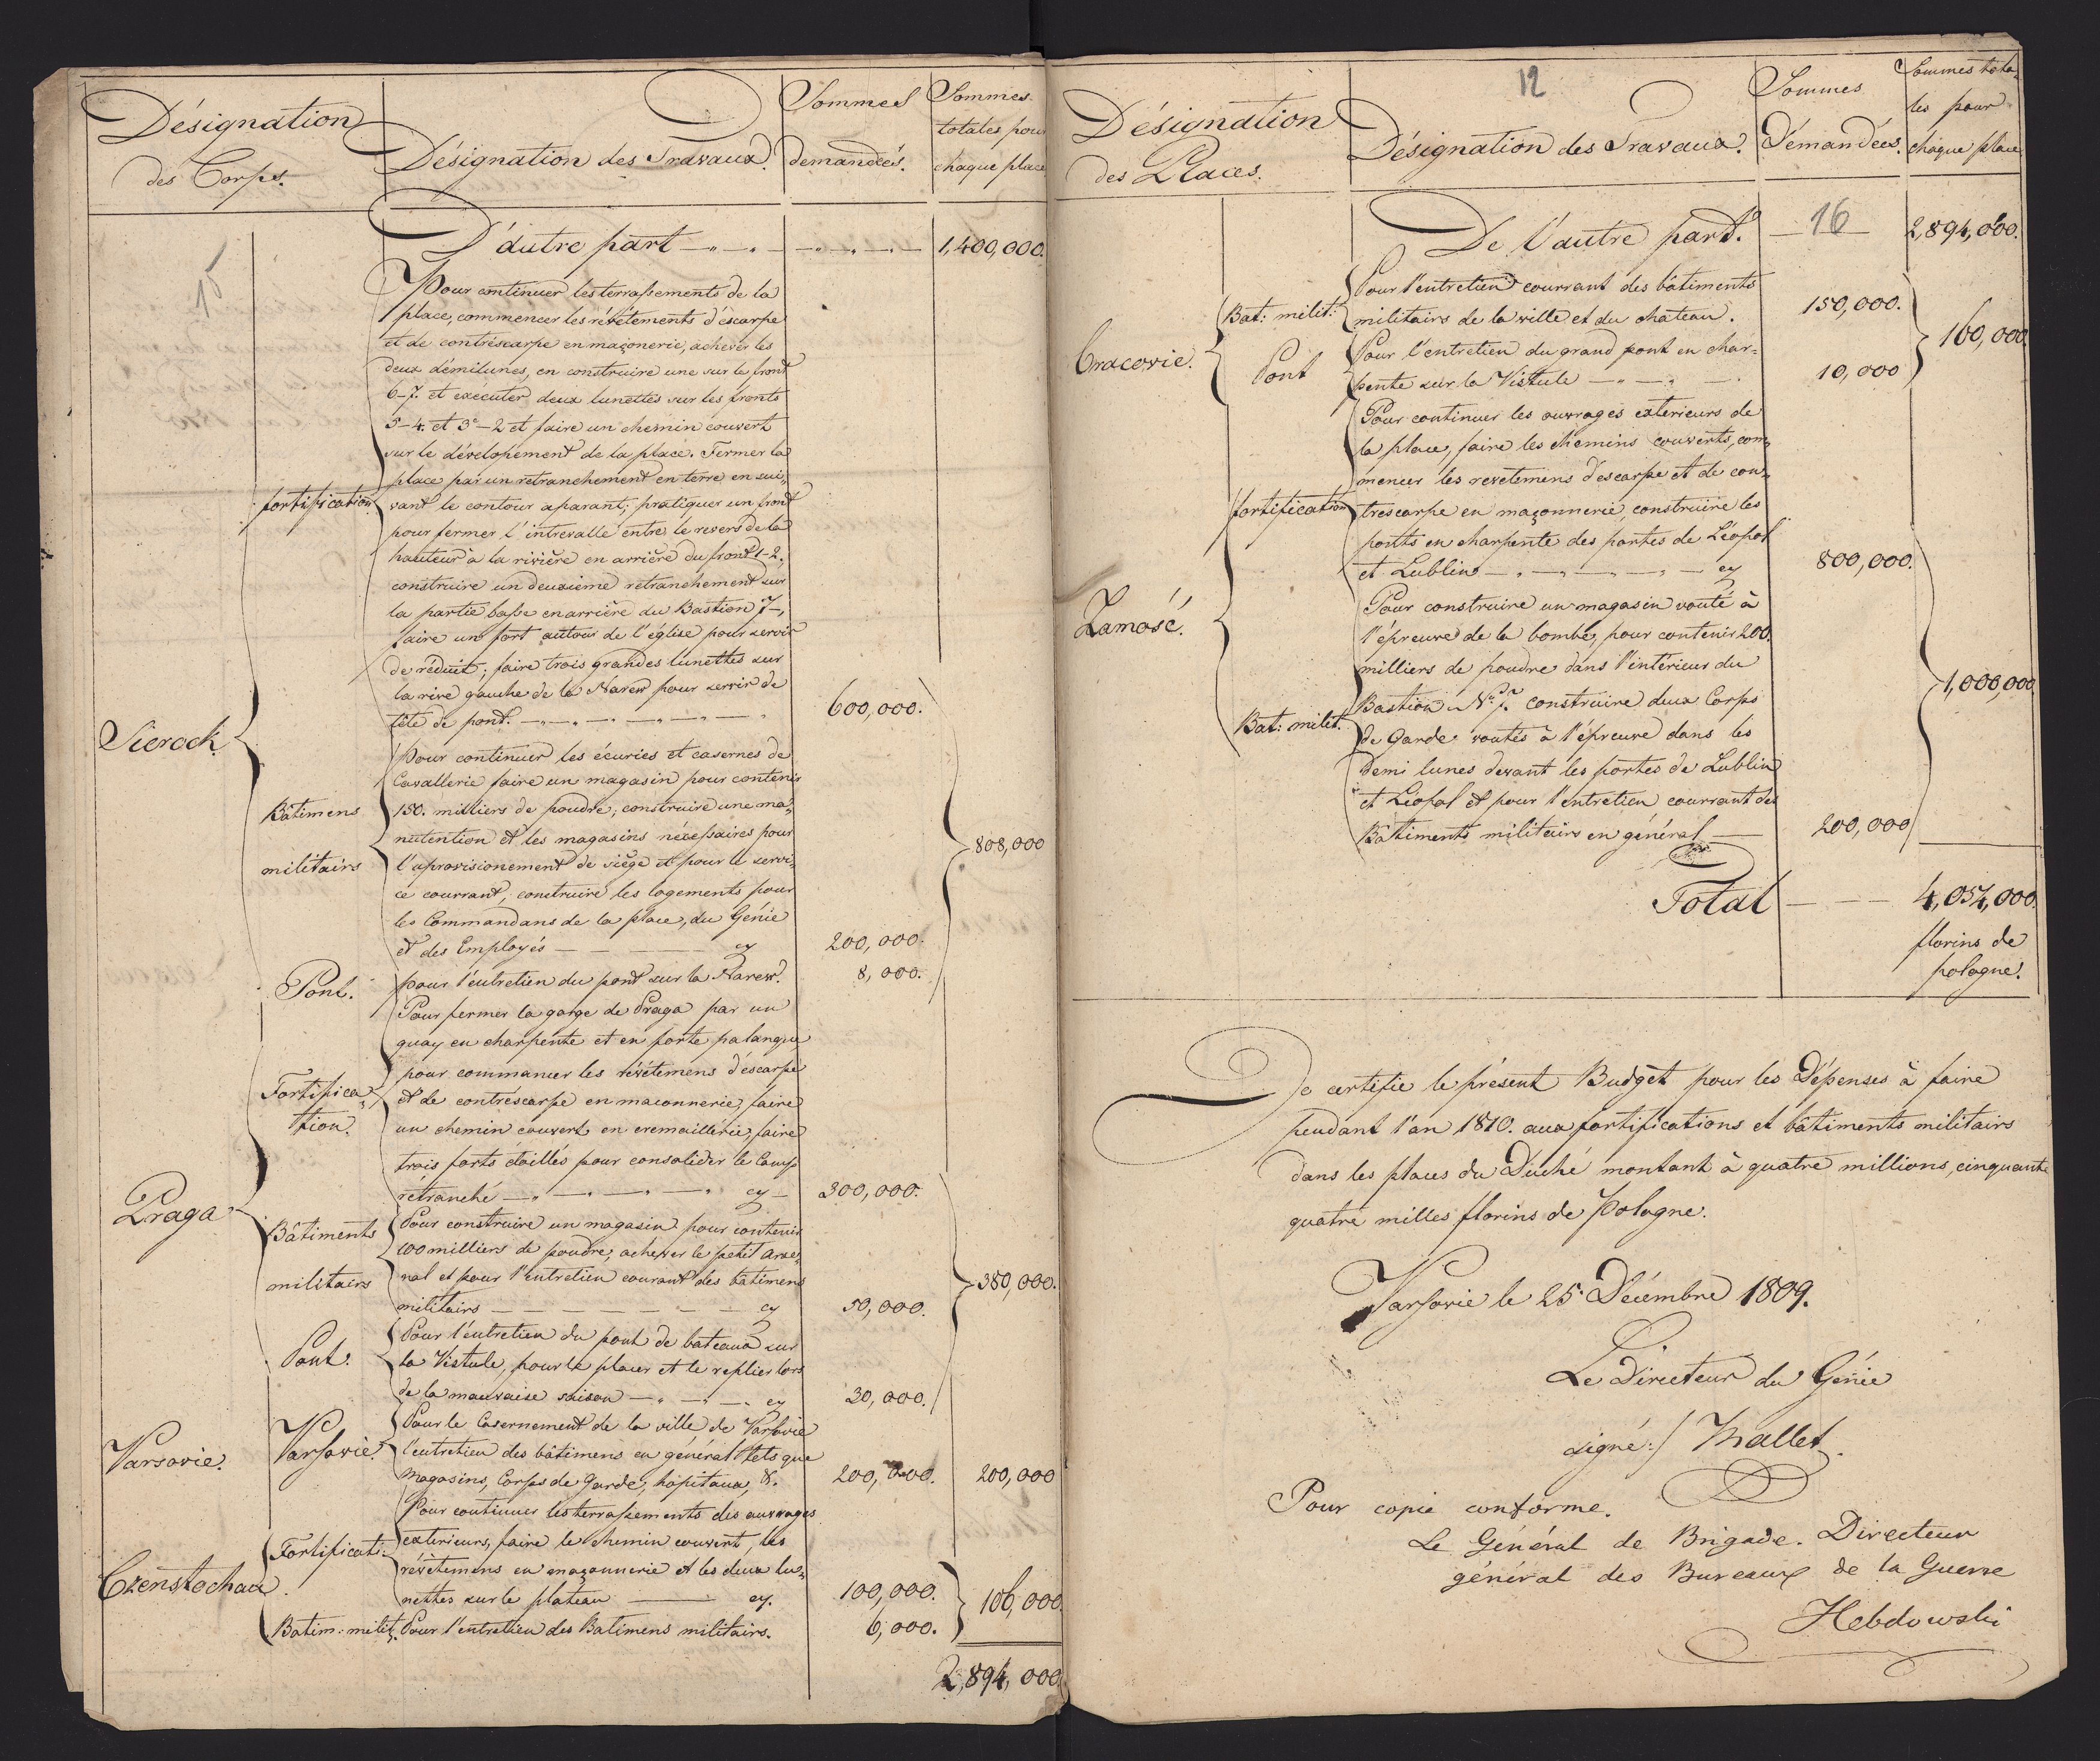 Désignation
des Corps.
Désignation des Travaux.
Sommes
demandées.
Sommes
totales pour
chaque place
15
D'autre part
1,400,000.
Sierock
fortification
Pour continuer les terrassements de la
place, commencer les révêtements d'éscarpe
et de contréscarpe en maçonerie, achever les
deux démilunes, en construire une sur le front
6-7. et exécuter deux lunettes sur les fronts
3-4. et 3-2 et faire un chemin couvert
sur le dévelopement de la place. Fermer la
place par un retranchement en terre en sui-
vant le contour aparant; pratiquer un front
pour fermer l'intrevalle entre le revers de la
hauteur à la rivière en arrière du front 1-2.
construire un deuxieme retranchement sur
la partie basse en arrière du Bastion 7-,
faire un fort autour de l'église pour servir
de réduit; faire trois grandes lunettes sur
la rive gauche de la Narew pour servir de
tête de pont.
600,000.
Bâtimens
militairs
Pour continuer les écuries et casernes de
Cavallerie faire un magasin pour contenir
150. milliers de poudre; construire une ma-
nutention et les magasins nécessaires pour
l'aprovisionement de siège et pour le servi-
ce courrant, construire les logements pour
les Commandans de la place, du Génie
et des Employés cy
200,000.
808,000
Pont.
pour l'entretien du pont sur la Narew.
8,000.
Praga
Fortifica-
tion.
Pour fermer la gorge de Praga par un
quay en charpente et en forte palanque
pour commancer les révétemens d'éscarpe
et de contréscarpe en maconnerie, faire
un chemin couvert en cremaillérie, faire
trois forts étoillés pour consolider le Camp
rétranché cy
300,000.
Bâtiments
militairs
Pour construire un magasin pour contenir
100 milliers de poudre, achever le petit Arse-
nal et pour l'entretien courant des bâtimens
militairs cy
50,000.
380,000.
Pont.
Pour l'entretien du pont de bateaux sur
la Vistule, pour le placer et le replier lors
de la mauvaise saison cy
30,000.
Varsovie.
Varsovie.
Pour le Casernement de la ville de Varsovie
l'entretien des bâtimens en général tels que
Magasins, Corps de Garde, hôpitaux, &.
200,000.
200,000
Czenstochau.
Fortificati:
Pour continuer les terrassements des ouvrages
exterieurs, faire le chemin couvert, les
révètemens en maçonnerie et les deux lu-
nettes sur le plateau cy.
100,000.
106,000.
Batim: milit.
Pour l'entretien des Batimens militairs.
6,000.
2,894,000
12
Désignation
des Places.
Désignation des Travaux.
Sommes
Démandées.
Sommes tota-
les pour
chaque place
De l'autre part.
16
2,894,000.
Cracovie.
Bat: milit:
Pour l'entretien courrant des bâtiments
militairs de la ville et du château.
150,000.
160,000.
Pont
Pour l'entretien du grand pont en char-
pente sur la Vistule
10,000
Zamość.
fortification
Pour continuer les ouvrages exterieurs de
la place, faire les chemins couverts, com-
mencer les revetemens d'escarpe et de con-
trescarpe en maçonnerie, construire les
ponts en charpente des portes de Léopol
et Lublin cy
800,000.
Bat: milit.
Pour construire un magasin vouté à
l'épreuve de la bombe, pour contenir 200.
milliers de poudre dans l'intérieur du
Bastion No 7. construire deux Corps
de Garde voutés à l'épreuve dans les
demi lunes devant les portes de Lublin
et Léopol et pour l'entretien courrant des
Bâtiments militairs en général
200,000
1,000,000
Total
4,054,000.
florins de
pologne.
Je certifie le présent Budgèt pour les Dépenses à faire
pendant l'an 1810. aux fortifications et bâtiments militairs
dans les places du Duché montant à quatre millions, cinquante
quatre milles florins de Pologne.
Varsovie le 25. Décembre 1809.
Le Directeur du Génie
signé:/ Mallet.
Pour copie conforme.
Le Général de Brigade. Directeur
général des Bureaux de la Guerre
Hebdowski